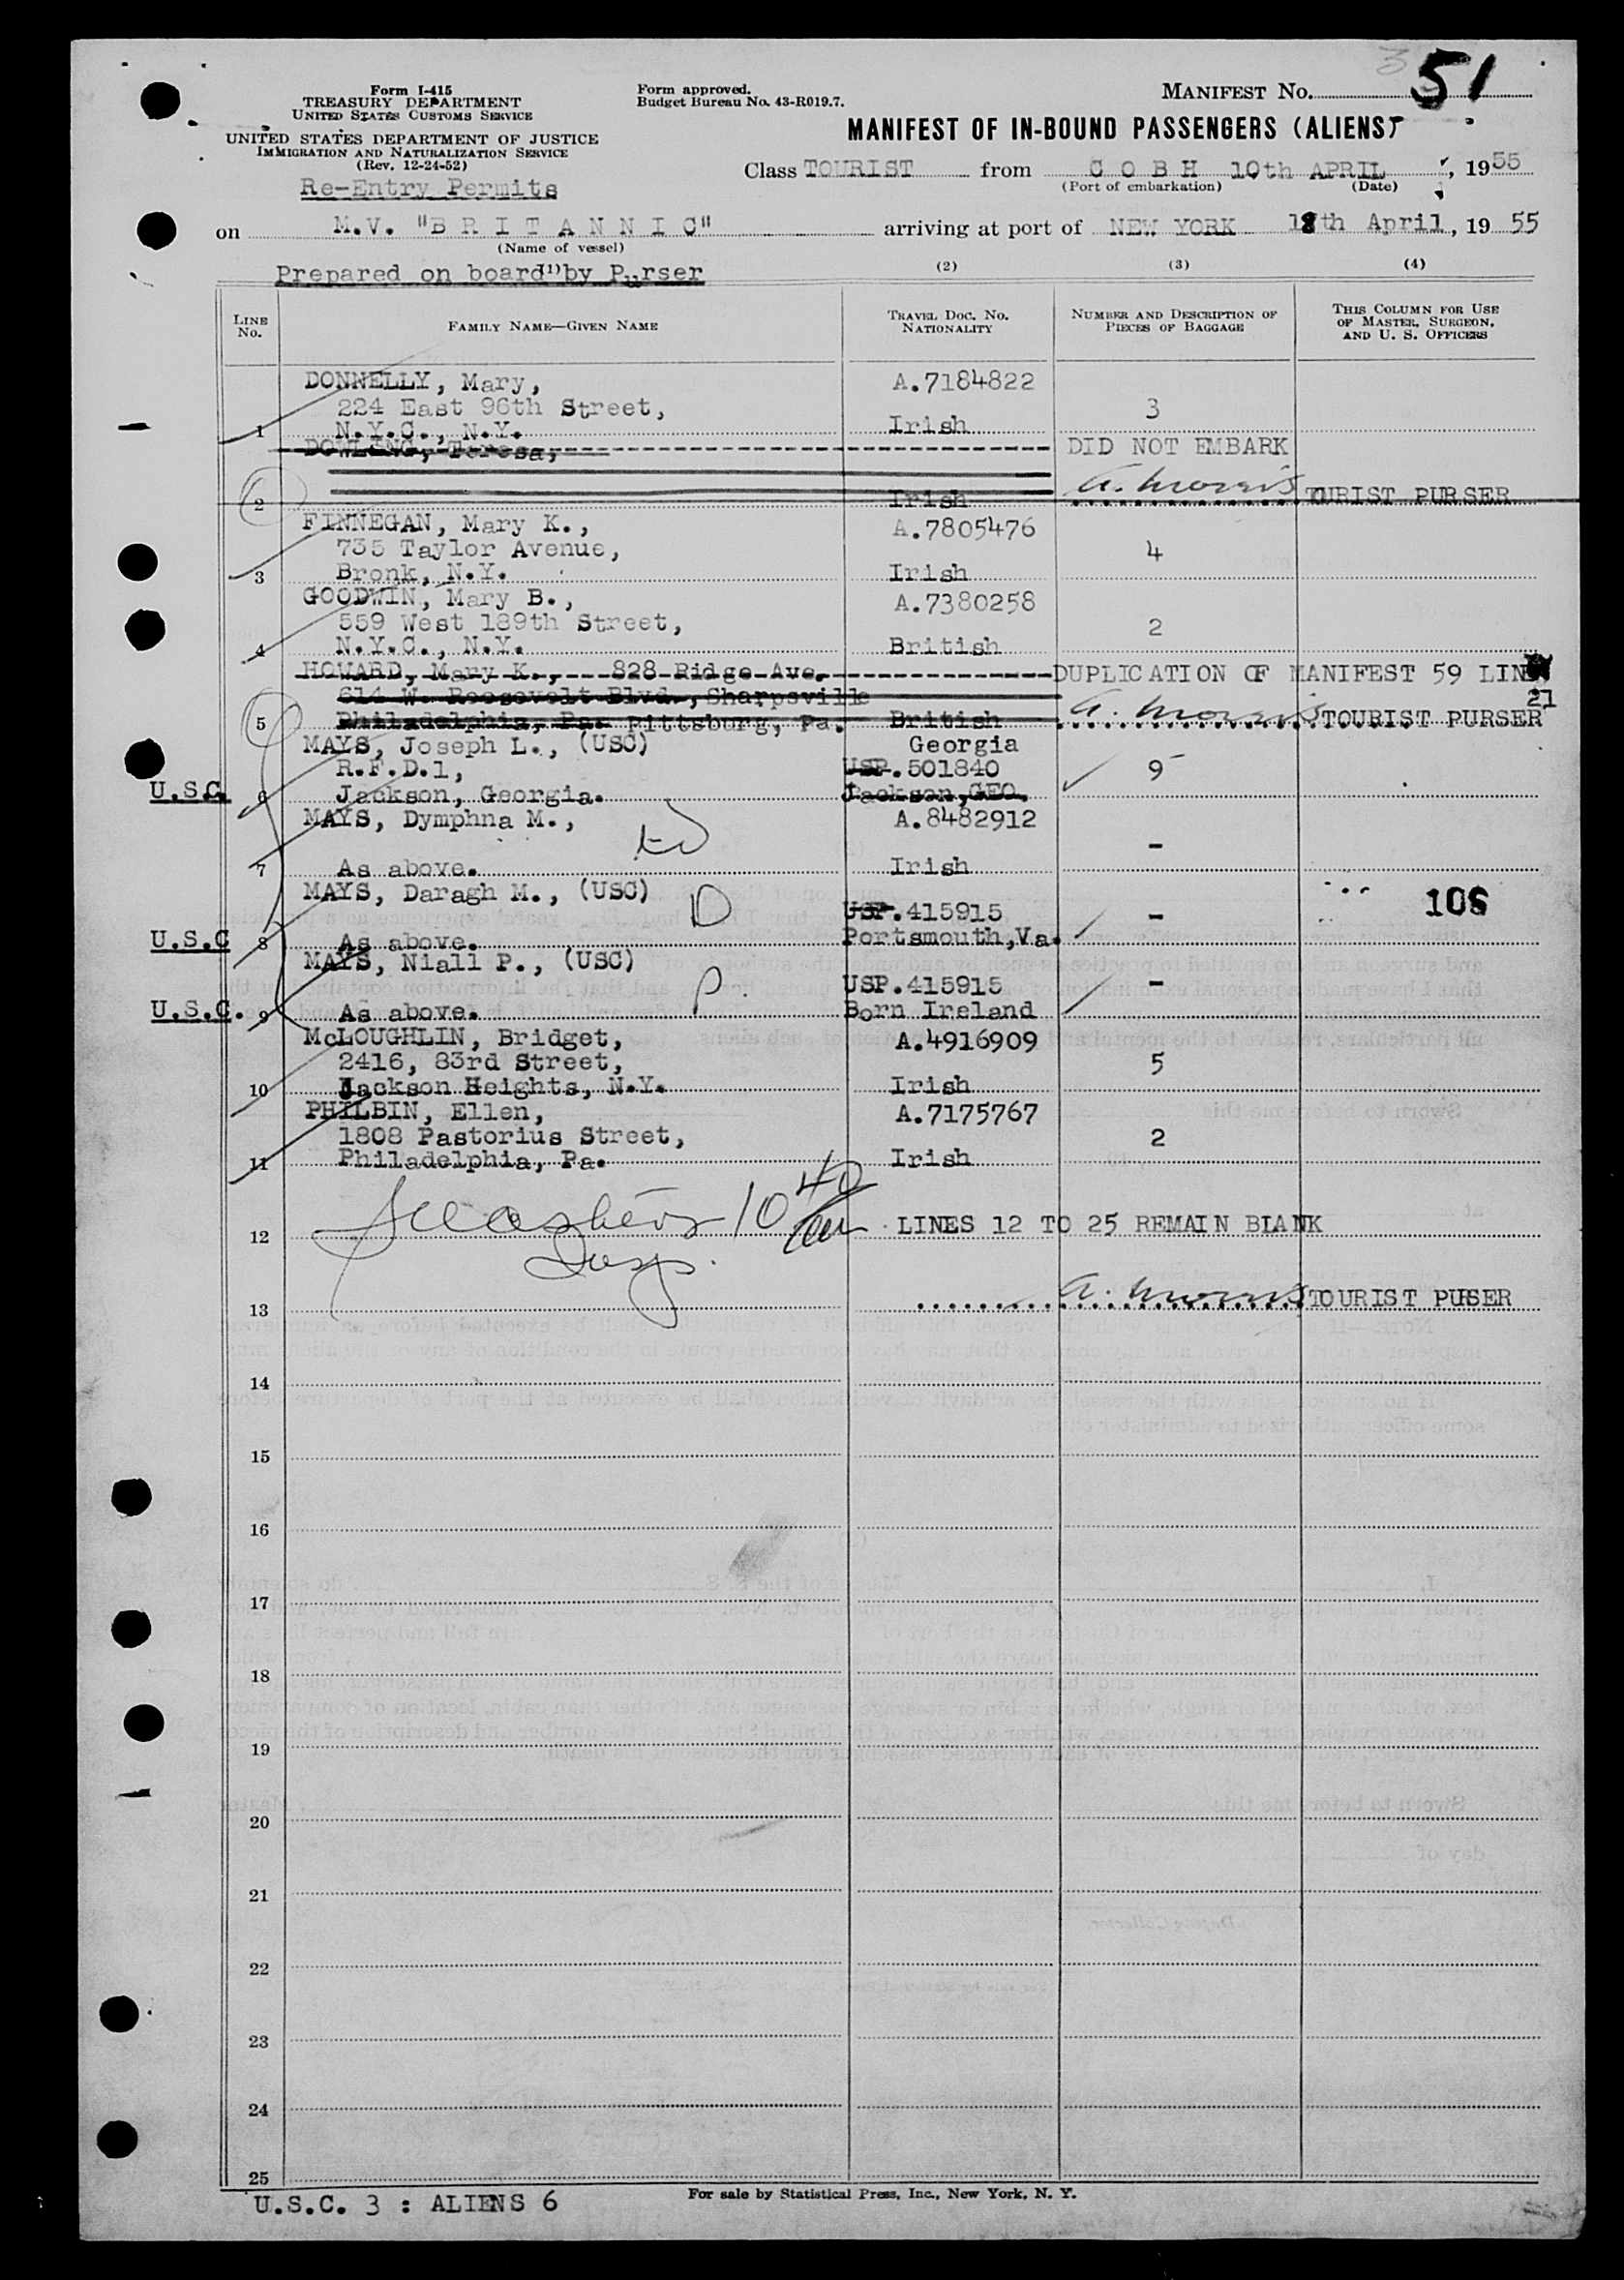 51
Form I-415
TREASURY DEPARTMENT
UNITED STATES CUSTOMS SERVICE
UNITED STATES DEPARTMENT OF JUSTICE
IMMIGRATION AND NATURALIZATION SERVICE
(Rev. 12-24-52)
Re-Entry Permits
Form approved.
Budget Bureau No. 43-R019.7.
MANIFEST No.
MANIFEST OF IN-BOUND PASSENGERS (ALIENS)
Class TOURIST from C O B H 10th APRIL, 1955
(Port of embarkation) (Date)
on M.V. "B R I T A N N I C" arriving at port of NEW YORK 18th April, 19 55
(Name of vessel)
Prepared on board by Purser
(1) (2) (3) (4)
LINE No. FAMILY NAME—GIVEN NAME TRAVEL DOC. No. NATIONALITY NUMBER AND DESCRIPTION OF PIECES OF BAGGAGE THIS COLUMN FOR USE OF MASTER, SURGEON, AND U. S. OFFICERS
DONNELLY, Mary, A.7184822
224 East 96th Street, 3
1 N.Y.C., N.Y. Irish
DOWLING, Teresa, DID NOT EMBARK
2 Irish A. Morris TOURIST PURSER
FINNEGAN, Mary K., A.7805476
735 Taylor Avenue, 4
3 Bronk, N.Y. Irish
GOODWIN, Mary B., A.7380258
559 West 189th Street, 2
4 N.Y.C., N.Y. British
HOWARD, Mary K., 828 Ridge Ave. DUPLICATION OF MANIFEST 59 LINE
614 W. Roosevelt Blvd., Sharpsville 21
5 Philadelphia, Pa. Pittsburg, Pa. British A. Morris TOURIST PURSER
MAYS, Joseph L., (USC) Georgia
R.F.D.1, USP.501840 9
U.S.C. 6 Jackson, Georgia. Jackson, GEO.
MAYS, Dymphna M., A.8482912
-
7 As above. Irish
MAYS, Daragh M., (USC) D 106
USP.415915 -
U.S.C 8 As above. Portsmouth, Va.
MAYS, Niall P., (USC)
P. USP.415915 -
U.S.C. 9 As above. Born Ireland
McLOUGHLIN, Bridget, A.4916909
2416, 83rd Street, 5
10 Jackson Heights, N.Y. Irish
PHILBIN, Ellen, A.7175767
1808 Pastorius Street, 2
11 Philadelphia, Pa. Irish
10 40
12 LINES 12 TO 25 REMAIN BLANK
Insp.
13 A. Morris TOURIST PURSER
14
15
16
17
18
19
20
21
22
23
24
25
U.S.C. 3 : ALIENS 6
For sale by Statistical Press, Inc., New York, N. Y.